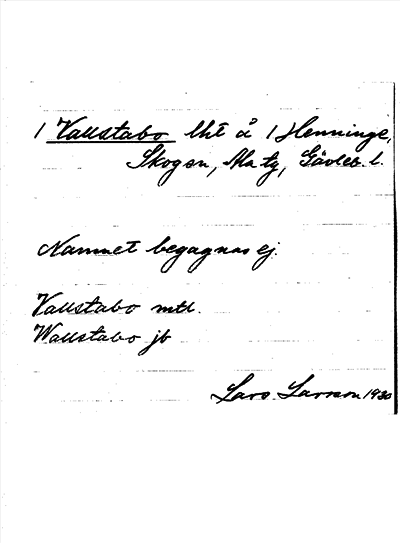 1 Vallstabo lht å 1 Henninge,
Skogsn, Ala tg, Gävleb. l.
Namnet begagnas ej.
Vallstabo mtl.
Wallstabo jb
Lars Larsson 1930